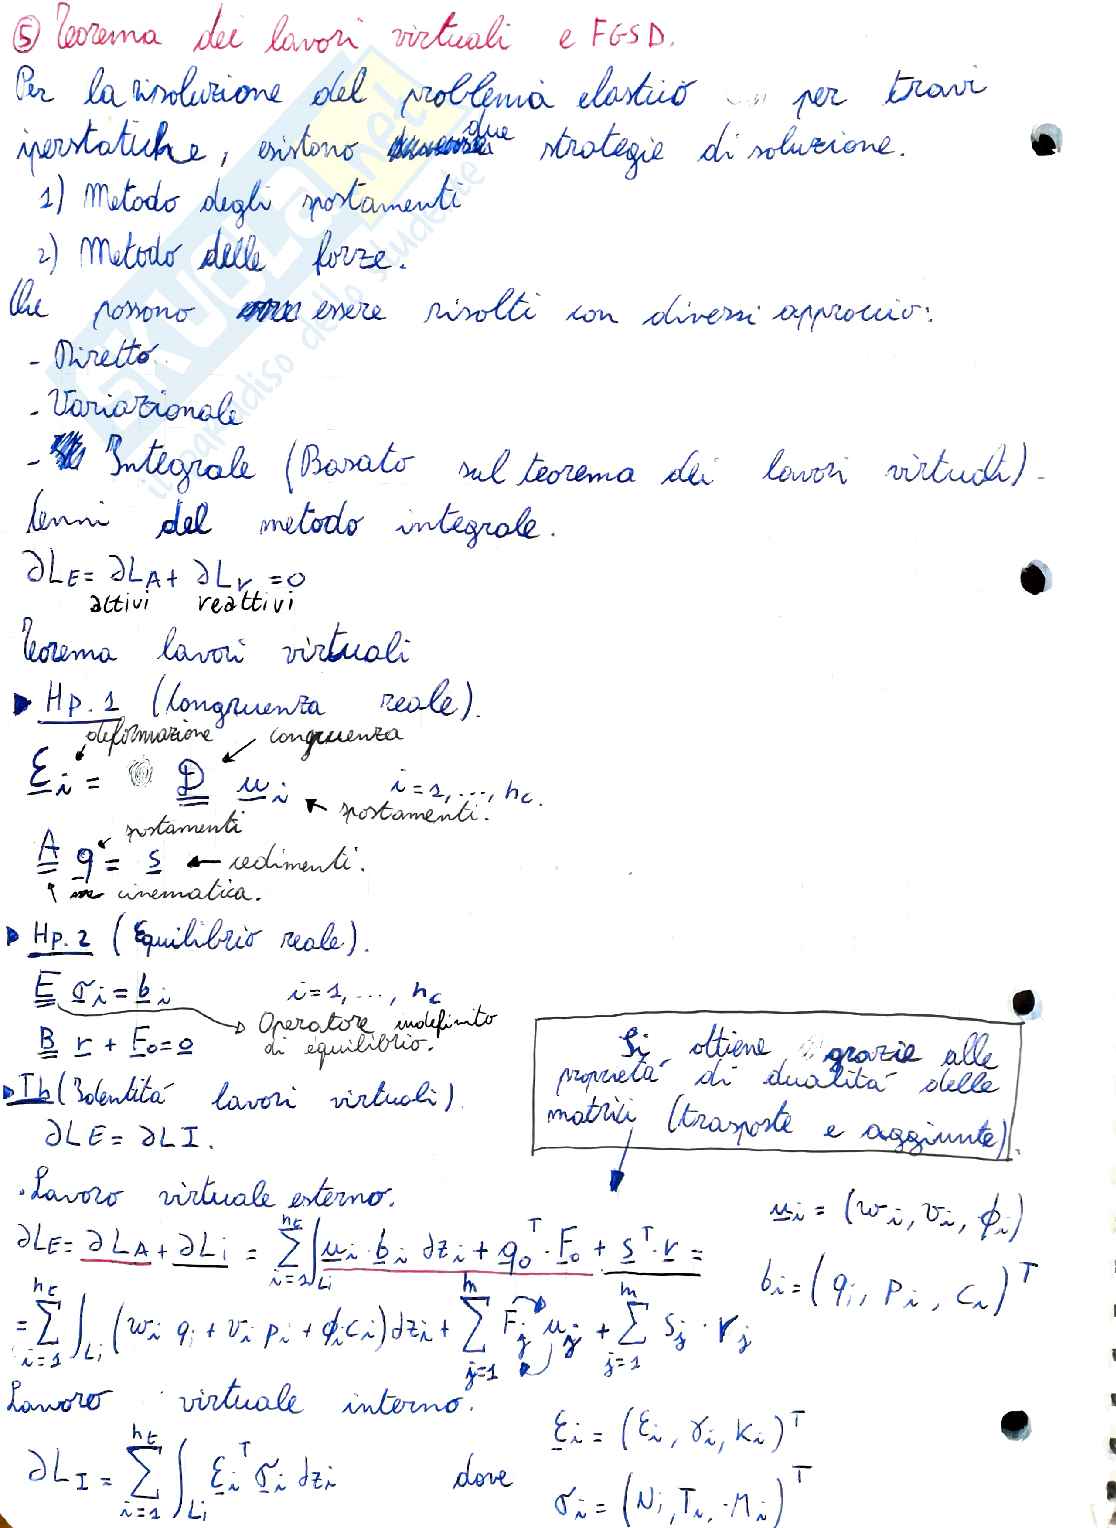 ⑤ Teorema dei lavori virtuali e FGSD.
Per la risoluzione del problema elastico per travi
iperstatiche, esistono due strategie di soluzione.
1) Metodo degli spostamenti
2) Metodo delle forze.
Che possono essere risolti con diversi approccio:
- Diretto.
- Variazionale
- Integrale (Basato sul teorema dei lavori virtuali)-
Cenni del metodo integrale.
∂LE = ∂LA + ∂Lr = 0
attivi reattivi
Teorema lavori virtuali
▶ Hp. 1 (Congruenza reale).
deformazione congruenza
εi = D ui i = 1, ..., nc.
spostamenti.
spostamenti
A q = s ← cedimenti.
cinematica.
▶ Hp. 2 (Equilibrio reale).
E σi = bi i = 1, ..., nc
Operatore indefinito
di equilibrio.
B r + F0 = 0
Si ottiene grazie alle
proprietà di dualità delle
matrici (trasposte e aggiunte).
▶ Th (Identità lavori virtuali).
∂LE = ∂LI.
. Lavoro virtuale esterno.
ui = (wi, vi, ϕi)
∂LE = ∂LA + ∂Li = Σ i=1 nt ∫Li ui · bi dzi + q0^T · F0 + s^T · r =
bi = (qi, pi, ci)^T
= Σ i=1 nt ∫Li (wi qi + vi pi + ϕi ci) dzi + Σ j=1 m Fj uj + Σ j=1 m sj · rj
Lavoro virtuale interno.
εi = (εi, γi, ki)^T
∂LI = Σ i=1 nt ∫Li εi^T σi dzi dove
σi = (Ni, Ti, Mi)^T
SKUOLA.net
il paradiso dello studente